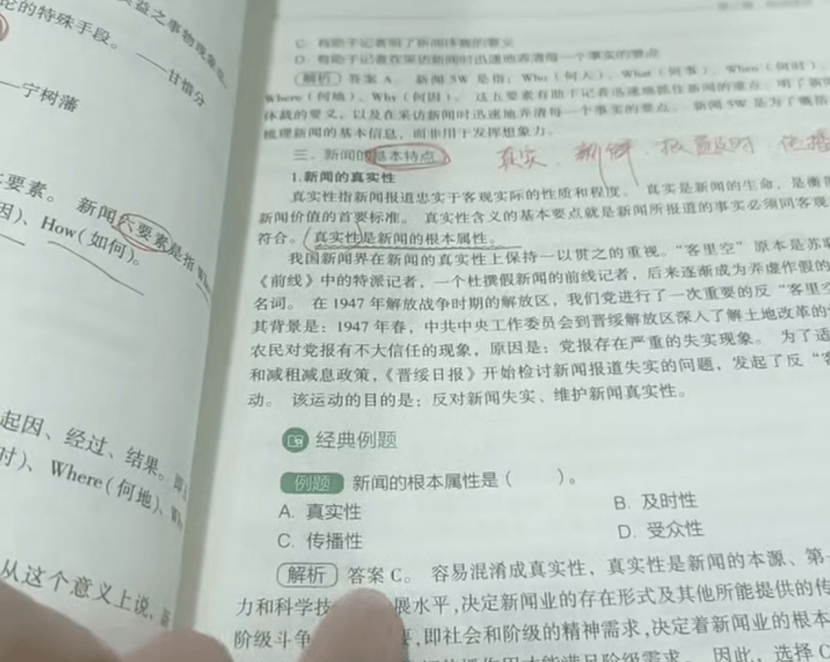 论的特殊手段。
益之事物现象
——甘惜分
——宁树藩
要素。 新闻六要素是指
因)、How(如何)。
起因、经过、结果。
时)、Where(何地)、
从这个意义上说,
C. 有助于记者明了新闻体裁的要义
D. 有助于记者在采访新闻时迅速地弄清每一个事实的要点
解析 答案 A。 新闻 5W 是指:Who(何人)、What(何事)、When(何时)、
Where(何地)、Why(何因)。 这五要素有助于记者迅速地抓住新闻的重点, 明了新闻
体裁的要义,以及在采访新闻时迅速地弄清每一个事实的要点。 新闻 5W 是为了概括
梳理新闻的基本信息,而非用于发挥想象力。
三、新闻的基本特点 真实. 新鲜. 报道及时. 传播
1. 新闻的真实性
真实性指新闻报道忠实于客观实际的性质和程度。 真实是新闻的生命,是衡
新闻价值的首要标准。 真实性含义的基本要点就是新闻所报道的事实必须同客观
符合。 真实性是新闻的根本属性。
我国新闻界在新闻的真实性上保持一以贯之的重视。“客里空”原本是苏
《前线》中的特派记者,一个杜撰假新闻的前线记者,后来逐渐成为弄虚作假的
名词。 在 1947 年解放战争时期的解放区,我们党进行了一次重要的反“客里空
其背景是:1947 年春,中共中央工作委员会到晋绥解放区深入了解土地改革的
农民对党报有不大信任的现象,原因是:党报存在严重的失实现象。 为了适
和减租减息政策,《晋绥日报》开始检讨新闻报道失实的问题,发起了反“客
动。 该运动的目的是:反对新闻失实、维护新闻真实性。
经典例题
例题 新闻的根本属性是( )。
A. 真实性 B. 及时性
C. 传播性 D. 受众性
解析 答案 C。 容易混淆成真实性,真实性是新闻的本源、第一
力和科学技 展水平,决定新闻业的存在形式及其他所能提供的传
阶级斗争 要,即社会和阶级的精神需求,决定着新闻业的根本
因此,选择 C